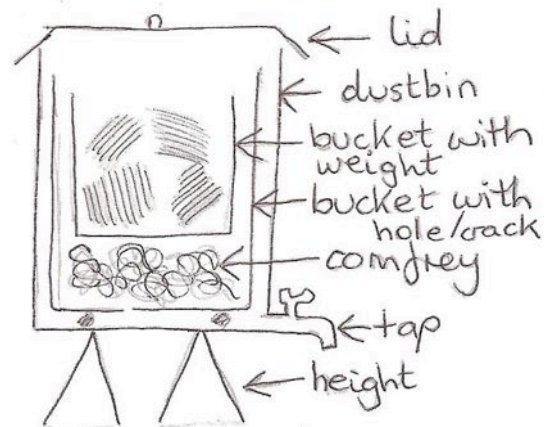 lid
dustbin
bucket with
weight
bucket with
hole/crack
comfrey
tap
height